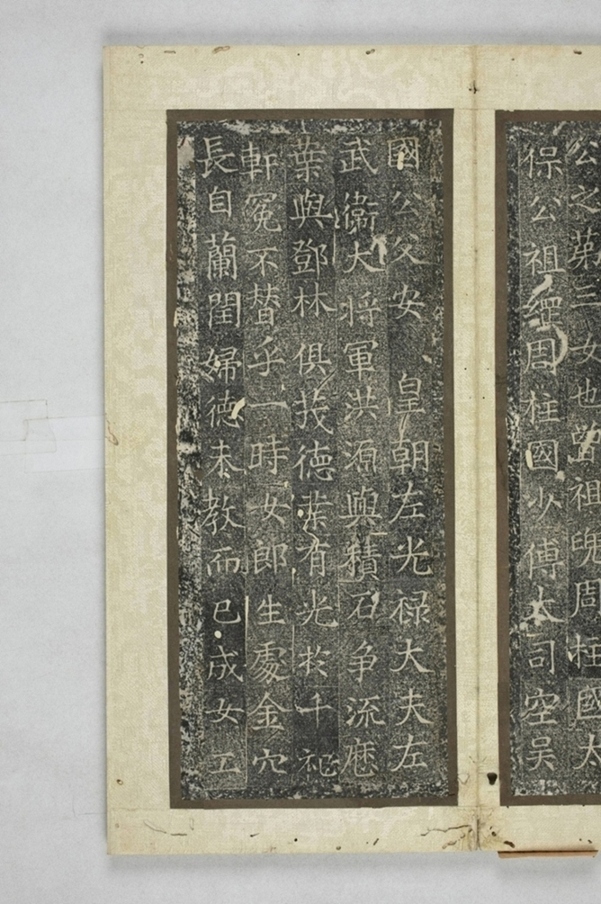 公之苐三女也曾祖皝周柱國太
保公祖綽周柱國少傅大司空吴
國公父安　皇朝左光禄大夫左
武衞大将軍洪源與積石争流㦄
葉與鄧林俱茂德業有光扵千祀
軒冕不替乎一時女郎生處金穴
長自蘭閨婦徳未教而已成女工